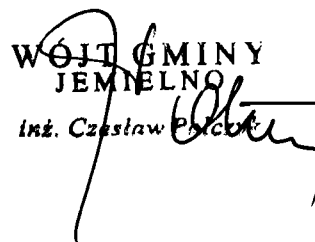 WÓJT GMINY
JEMIELNO
inż. Czesław